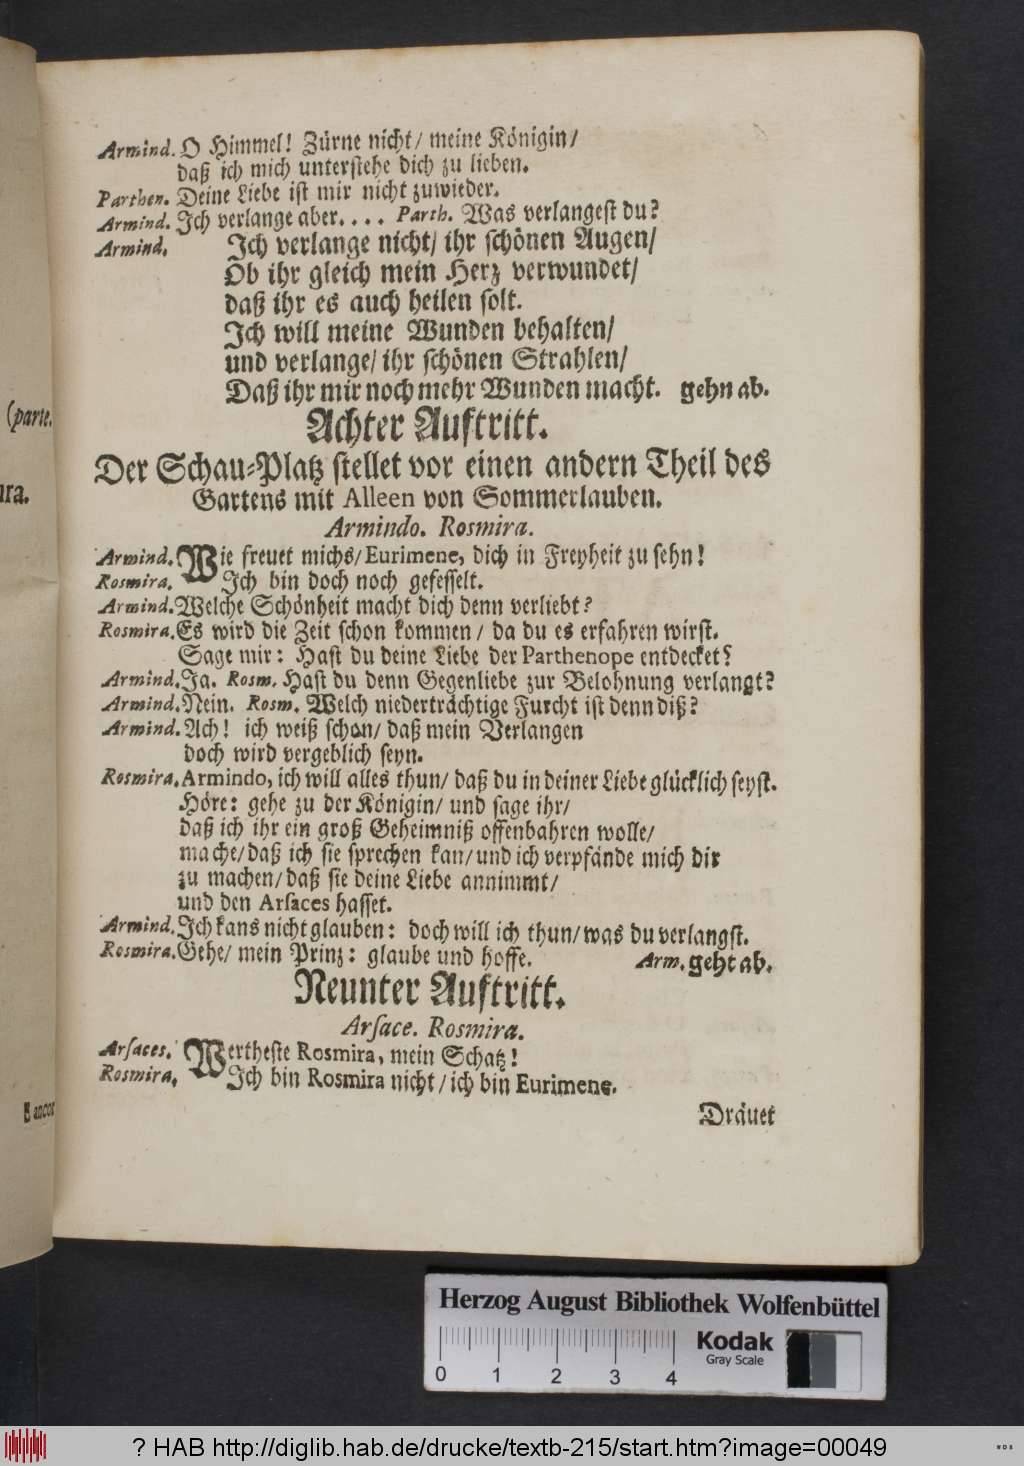 Armind. O Himmel! Zürne nicht/ meine Königin/
daß ich mich unterstehe dich zu lieben.
Parthen. Deine Liebe ist mir nicht zuwieder.
Armind. Ich verlange aber.... Parth. Was verlangest du?
Armind. Ich verlange nicht/ ihr schönen Augen/
Ob ihr gleich mein Herz verwundet/
daß ihr es auch heilen solt.
Ich will meine Wunden behalten/
und verlange/ ihr schönen Strahlen/
Daß ihr mir noch mehr Wunden macht. gehn ab.
Achter Auftritt.
Der Schau-Platz stellet vor einen andern Theil des
Gartens mit Alleen von Sommerlauben.
Armindo. Rosmira.
Armind. Wie freuet michs/ Eurimene, dich in Freyheit zu sehn!
Rosmira. Ich bin doch noch gefesselt.
Armind. Welche Schönheit macht dich denn verliebt?
Rosmira. Es wird die Zeit schon kommen/ da du es erfahren wirst.
Sage mir: Hast du deine Liebe der Parthenope entdecket?
Armind. Ja. Rosm. Hast du denn Gegenliebe zur Belohnung verlangt?
Armind. Nein. Rosm. Welch niederträchtige Furcht ist denn diß?
Armind. Ach! ich weiß schon/ daß mein Verlangen
doch wird vergeblich seyn.
Rosmira. Armindo, ich will alles thun/ daß du in deiner Liebe glücklich seyst.
Höre: gehe zu der Königin/ und sage ihr/
daß ich ihr ein groß Geheimniß offenbahren wolle/
mache/ daß ich sie sprechen kan/ und ich verpfände mich dir
zu machen/ daß sie deine Liebe annimmt/
und den Arsaces hasset.
Armind. Ich kans nicht glauben: doch will ich thun/ was du verlangst.
Rosmira. Gehe/ mein Prinz: glaube und hoffe. Arm. geht ab.
Neunter Auftritt.
Arsace. Rosmira.
Arsaces. Wertheste Rosmira, mein Schatz!
Rosmira. Ich bin Rosmira nicht/ ich bin Eurimene.
Dräuet
(parte.
ira.
ancor
Herzog August Bibliothek Wolfenbüttel
Kodak
Gray Scale
0 1 2 3 4
? HAB http://diglib.hab.de/drucke/textb-215/start.htm?image=00049